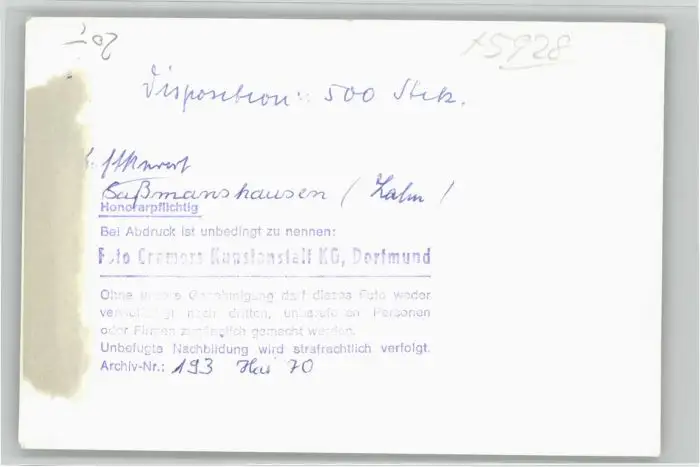 x5928
Disposition: 500 Stck.
Saßmanshausen / Zahn /
Honorarpflichtig
Bei Abdruck ist unbedingt zu nennen:
Foto Cramers Kunstanstalt KG, Dortmund
Ohne unsere Genehmigung darf dieses Foto weder
vervielfältigt noch dritten, unberufenen Personen
oder Firmen zugänglich gemacht werden.
Unbefugte Nachbildung wird strafrechtlich verfolgt.
Archiv-Nr.: 193 Mai 70